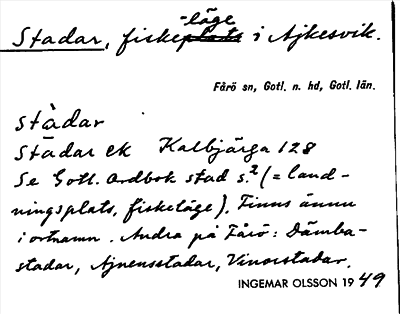 -läge
Stadar, fiskeplats i Ajkesvik.
Fårö sn, Gotl. n. hd, Gotl. län.
stàdar
Städar ek Kalbjärga 128
Se Gotl. Ordbok stad s.² (= land-
ningsplats, fiskeläge). Finns ännu
i ortnamn. Andra på Fårö: Dämba-
stadar, Ajnensstadar, Vinorstadar.
INGEMAR OLSSON 1949